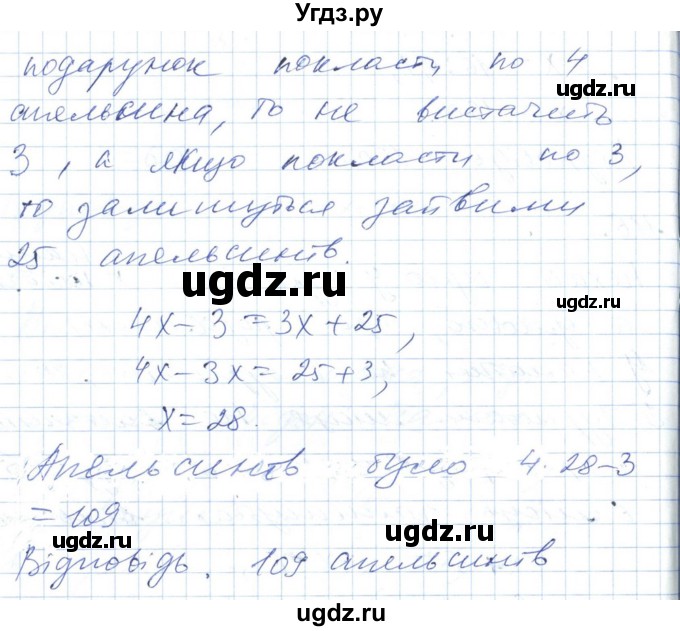 Угдз.ру
подарунок покласти по 4
апельсина, то не вистачить
3, а якщо покласти по 3,
то залишуться зайвими
25 апельсинів.
4x - 3 = 3x + 25,
4x - 3x = 25 + 3,
x = 28.
Апельсинів було 4 · 28 - 3
= 109
Відповідь. 109 апельсинів
ugdz.ru
ugdz.ru
ugdz.ru
ugdz.ru
ugdz.ru
ugdz.ru
ugdz.ru